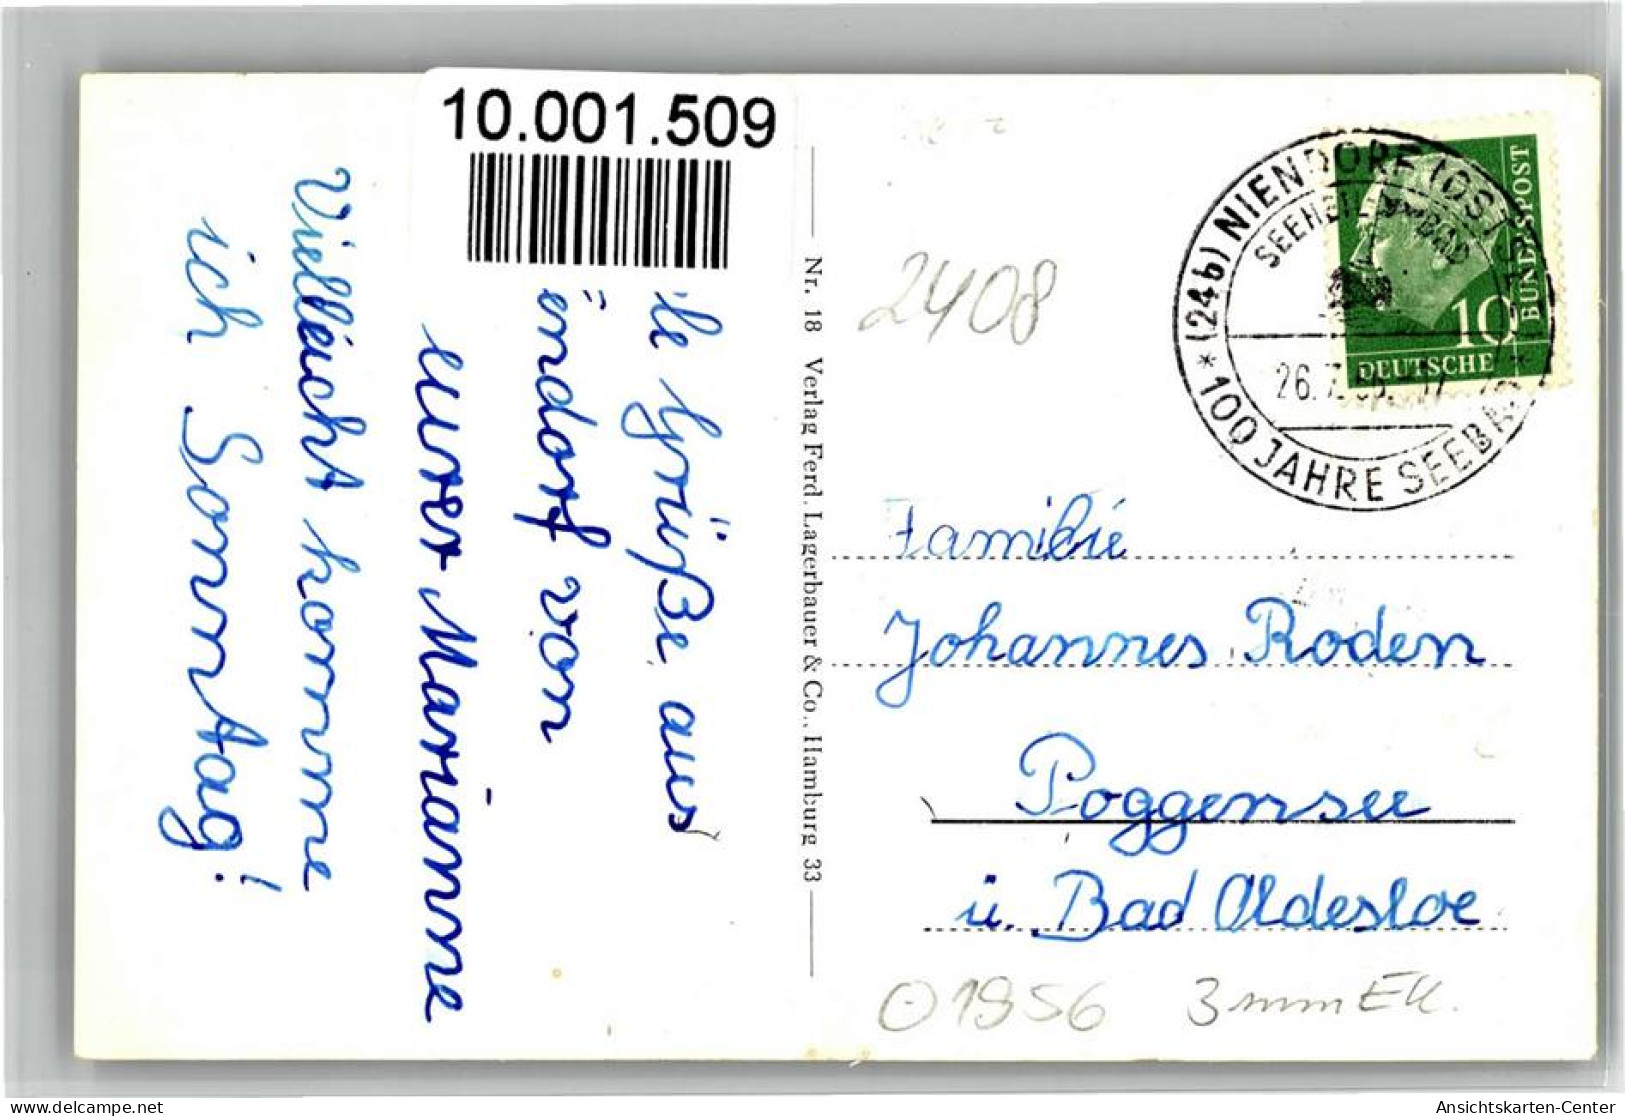 10.001.509
le Grüße aus
endorf von
eurer Marianne
Vielleicht komme
ich Sonntag!
Nr. 18 Verlag Ferd. Lagerbauer & Co., Hamburg 33
2408
(24b) NIENDORF (OST
SEEHEIL
26.7.
* 100 JAHRE SEEBAD *
10
DEUTSCHE
BUNDESPOST
Familie
Johannes Roden
Poggensee
ü. Bad Oldesloe
1956 3mm EK.
Ansichtskarten-Center